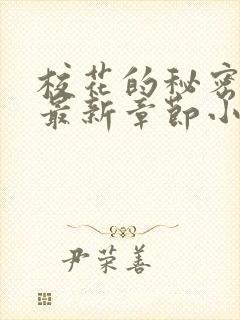 校花的秘密
最新章节小
尹荣善